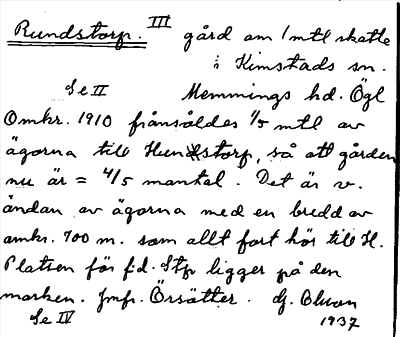 Rundstorp. III gård om 1 mtl skatte
i Kimstads sn.
Se II Memmings hd. Ögl
Omkr. 1910 frånsåldes 1/5 mtl av
ägorna till Hunstorp, så att gården
nu är = 4/5 mantal. Det är v.
ändan av ägorna med en bredd av
omkr. 700 m. som allt fort hör till H.
Platsen för f.d. Stp ligger på den
marken. Jmfr. Örsätter. Gf. Olson
Se IV 1937